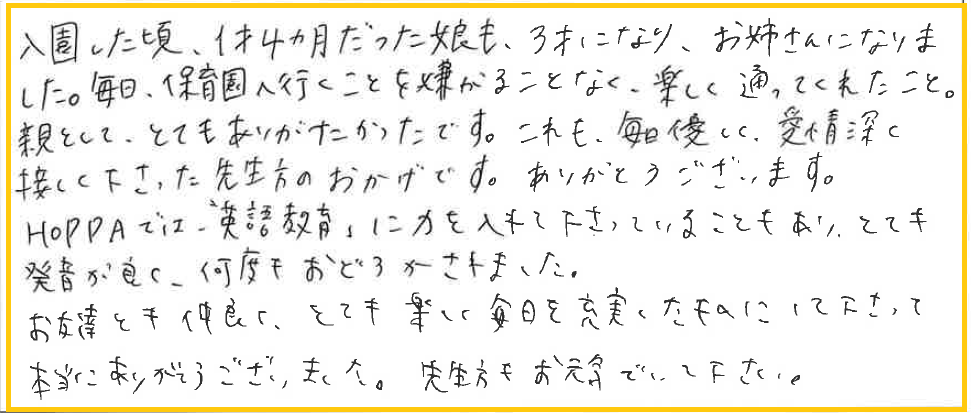 入園した頃、1才4カ月だった娘も、3才になり、お姉さんになりま
した。毎日、保育園へ行くことを嫌がることなく、楽しく通ってくれたこと。
親として、とてもありがたかったです。これも、毎日優しく、愛情深く
接して下さった先生方のおかげです。ありがとうございます。
HOPPAでは、"英語教育"に力を入れて下さっていることもあり、とても
発音が良く、何度もおどろかされました。
お友達とも仲良く、とても楽しく毎日を充実したものにして下さって
本当にありがとうございました。先生方もお元気でいて下さい。